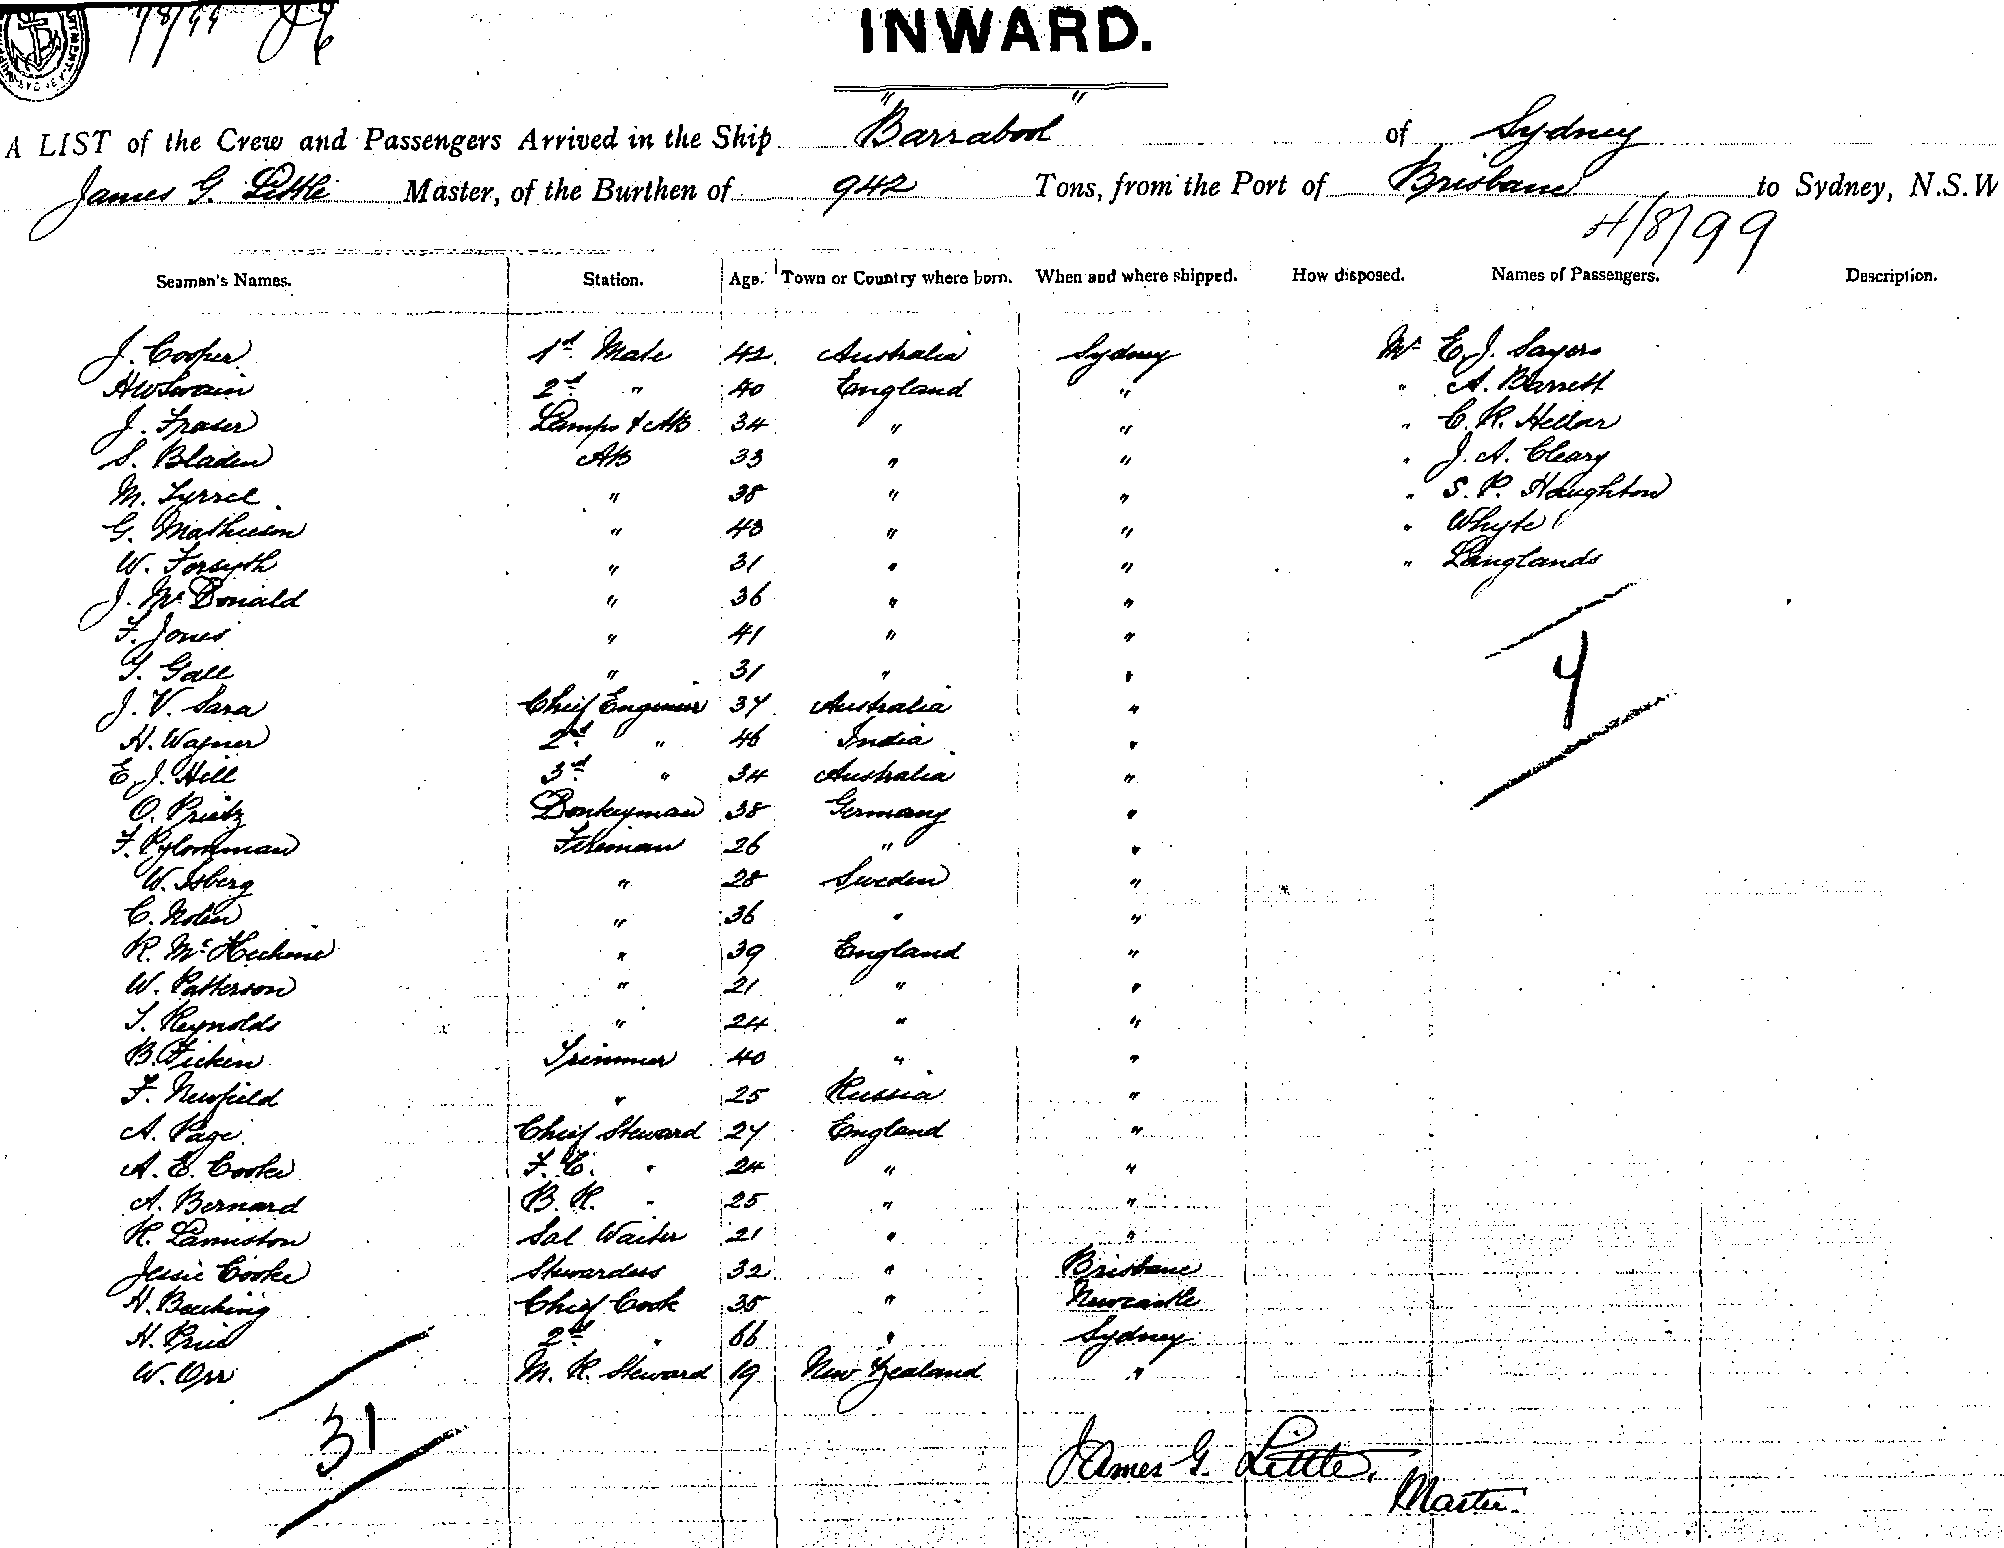 7/8/99
INWARD.
A LIST of the Crew and Passengers Arrived in the Ship "Barrabool" of Sydney
James G. Little Master, of the Burthen of 942 Tons, from the Port of Brisbane to Sydney, N.S.W
4/8/99
Seamen's Names. Station. Age. Town or Country where born. When and where shipped. How disposed. Names of Passengers. Description.
J. Cooper 1st Mate 42 Australia Sydney Mr E. J. Sayers
H W Swain 2nd " 40 England " " A. Barrett
J. Fraser Lamps & AB 34 " " " C. R. Hellar
S. Bladen AB 33 " " " J. A. Cleary
M. Tyrrel " 38 " " " S. P. Haughton
G. Mathieson " 43 " " " Whyte
W. Forsyth " 31 " " " Langlands
J. McDonald " 36 " "
F. Jones " 41 " "
T. Gall " 31 " "
7
J. V. Sara Chief Engineer 37 Australia "
H. Wagner 2nd " 46 India "
E. J. Hill 3rd " 34 Australia "
O. Prietz Donkeyman 38 Germany "
F. Fireman 26 " "
W. Isberg " 28 Sweden "
C. Nolin " 36 " "
R. " 39 England "
W. Patterson " 21 " "
T. Reynolds " 24 " "
B. Ficken Trimmer 40 " "
F. Newfield " 25 Russia "
A. Page Chief Steward 27 England "
A. E. Cooke F. C. " 24 " "
A. Bernard B. R. " 25 " "
R. Lamiston Sal Waiter 21 " "
Jessie Cooke Stewardess 32 " Brisbane
H. Beeching Chief Cook 35 " Newcastle
H. Price 2nd " 66 " Sydney
W. Orr M. R. Steward 19 New Zealand "
31
James G. Little,
Master.